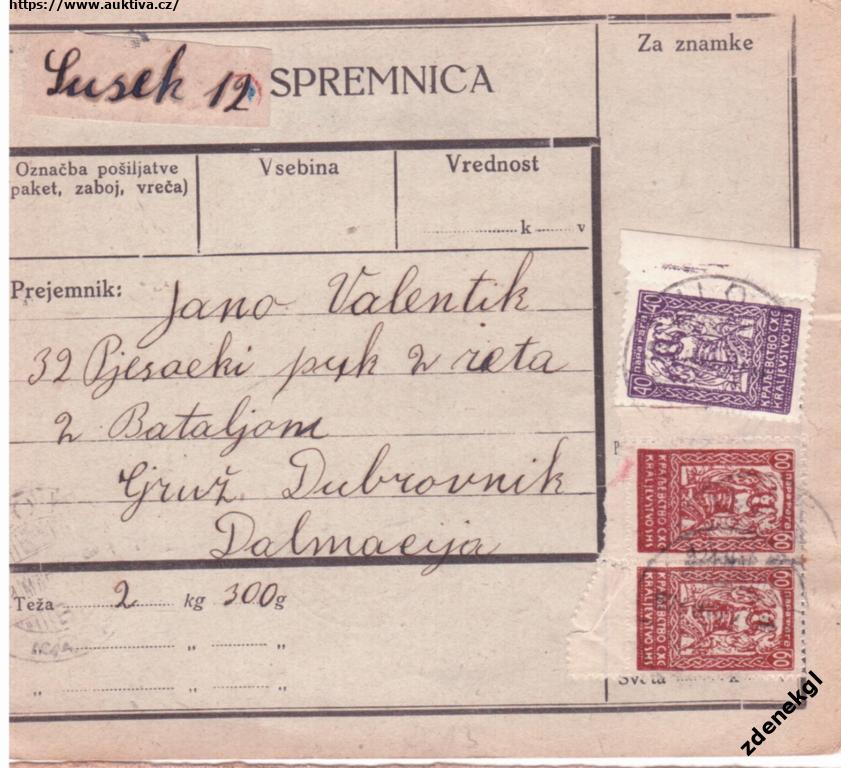 https://www.auktiva.cz/
Susek 12 SPREMNICA
Za znamke
Označba pošiljatve
paket, zaboj, vreča)
Vsebina
Vrednost
k v
Prejemnik: Jano Valentik
32 Pjesaeki puk 2 reta
2 Bataljom
Gruž Dubrovnik
Dalmacija
40 пара para 40
КРАЉЕВСТВО СХС
KRALJEVSTVO SHS
60 пара para 60
КРАЉЕВСТВО СХС
KRALJEVSTVO SHS
60 пара para 60
КРАЉЕВСТВО СХС
KRALJEVSTVO SHS
Teža 2 kg 300 g
" "
" "
Sveta k
zdenekgl